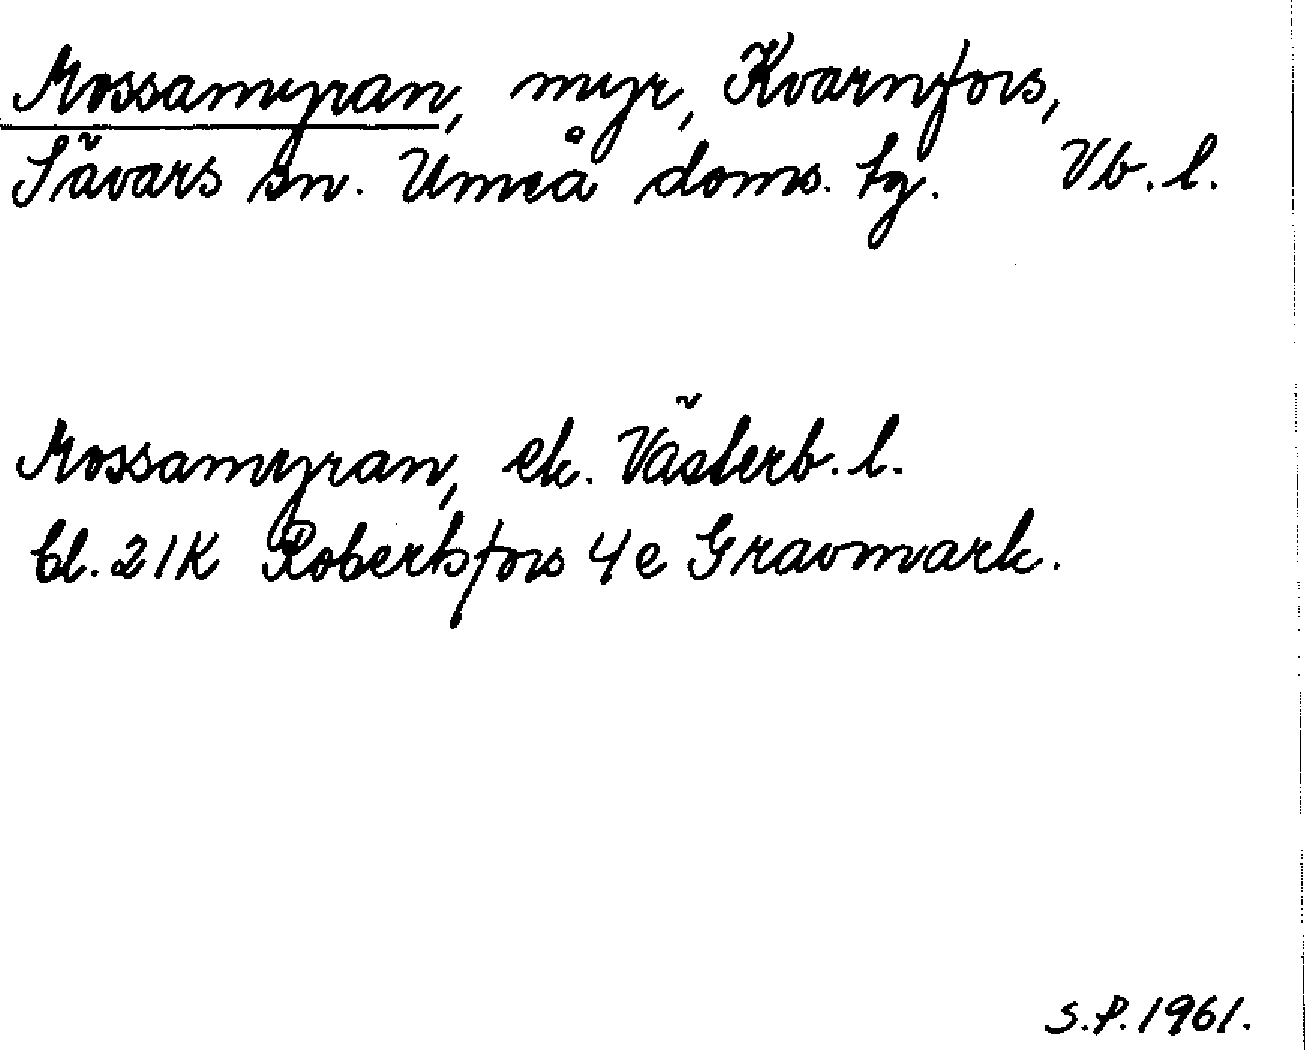 Mossamyran, myr, Kvarnfors,
Sävars sn. Umeå doms. tg. Vb. l.
Mossamyran, ek. Västerb. l.
bl. 21K Robertsfors 4e Gravmark.
S.P. 1961.